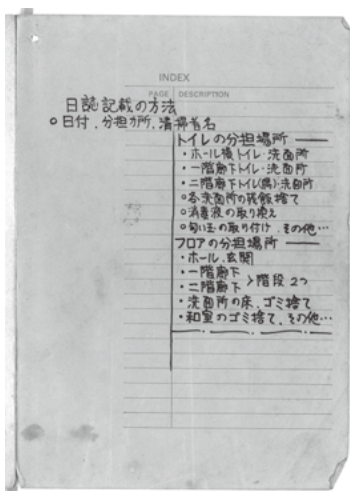 INDEX
PAGE DESCRIPTION
日誌記載の方法
○日付、分担カ所、清掃者名
トイレの分担場所 ——
・ホール横トイレ・洗面所
・一階廊下トイレ・洗面所
・二階廊下トイレ(共)・洗面所
○各洗面所の残飯捨て
○消毒液の取り換え
○匂い玉の取り付け、その他…
フロアの分担場所 ——
・ホール、玄関
・一階廊下
・二階廊下 >階段2つ
・洗面所の床、ゴミ捨て
・和室のゴミ捨て、その他…